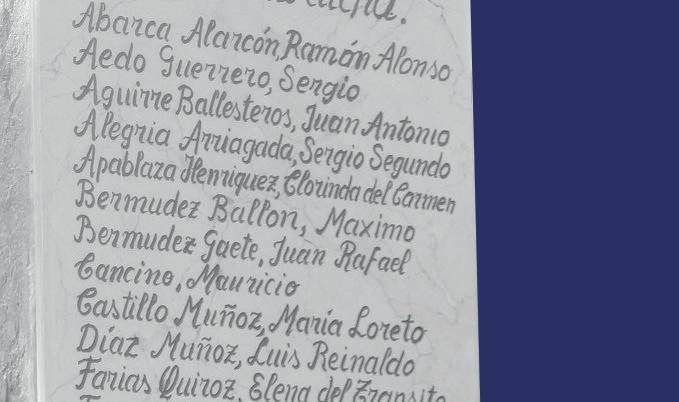 Abarca Alarcón, Ramón Alonso
Aedo Guerrero, Sergio
Aguirre Ballesteros, Juan Antonio
Alegria Arriagada, Sergio Segundo
Apablaza Henriquez, Clorinda del Carmen
Bermudez Ballon, Maximo
Bermudez Gaete, Juan Rafael
Cancino, Mauricio
Castillo Muñoz, María Loreto
Díaz Muñoz, Luis Reinaldo
Farias Quiroz, Elena del Transito